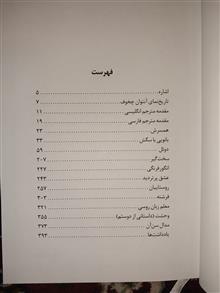 فهرست
اشاره ۵
تاریخ‌نمای آنتوان چخوف ۷
مقدمه مترجم انگلیسی ۱۱
مقدمه مترجم فارسی ۱۹
همسرش ۲۳
بانویی با سگش ۳۳
دوئل ۵۹
سخت‌گیر ۲۰۷
انگور فرنگی ۲۲۷
عشق پرتردید ۲۴۳
روستاییان ۲۵۷
فرشته ۳۰۳
معلم زبان روسی ۳۲۱
وحشت (داستانی از دوستم) ۳۵۵
مدال سن‌آن ۳۷۳
یادداشت‌ها ۳۹۳